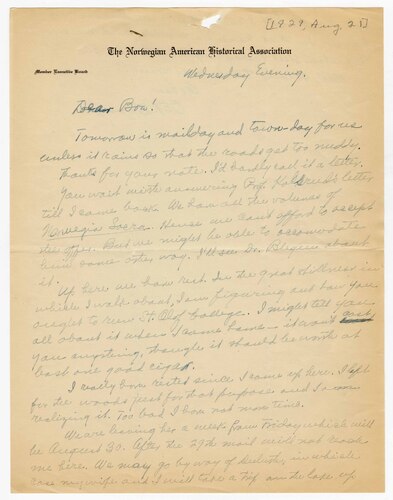 [1929, Aug. 21]
The Norwegian American Historical Association
Member Executive Board
Wednesday Evening.
Dear Boe!
Tomorrow is mailday and town-day for us
unless it rains so that the roads get too muddy.
Thanks for your note. I'd hardly call it a letter.
You wait with answering Prof. letter
till I come back. We have all the volumes of
Norwegia Sacra. Hence we can't afford to accept
the offer. But we might be able to accommodate
him some other way. I'll see Dr. Blegen about
it.
Up here we have rest. In the great stillness in
which I walk about, I am figuring out how you
ought to run St. Olaf College. I might tell you
all about it when I come home – it won't cost
you anything, though it should be worth at
least one good cigar.
I really have rested since I came up here. I left
for the woods just for that purpose and I am
realizing it. Too bad I have not more time.
We are leaving here a week from Friday which will
be August 30. After the 27th mail will not reach
me here. We may go by way of Duluth, in which
case my wife and I will take a trip on the lake up